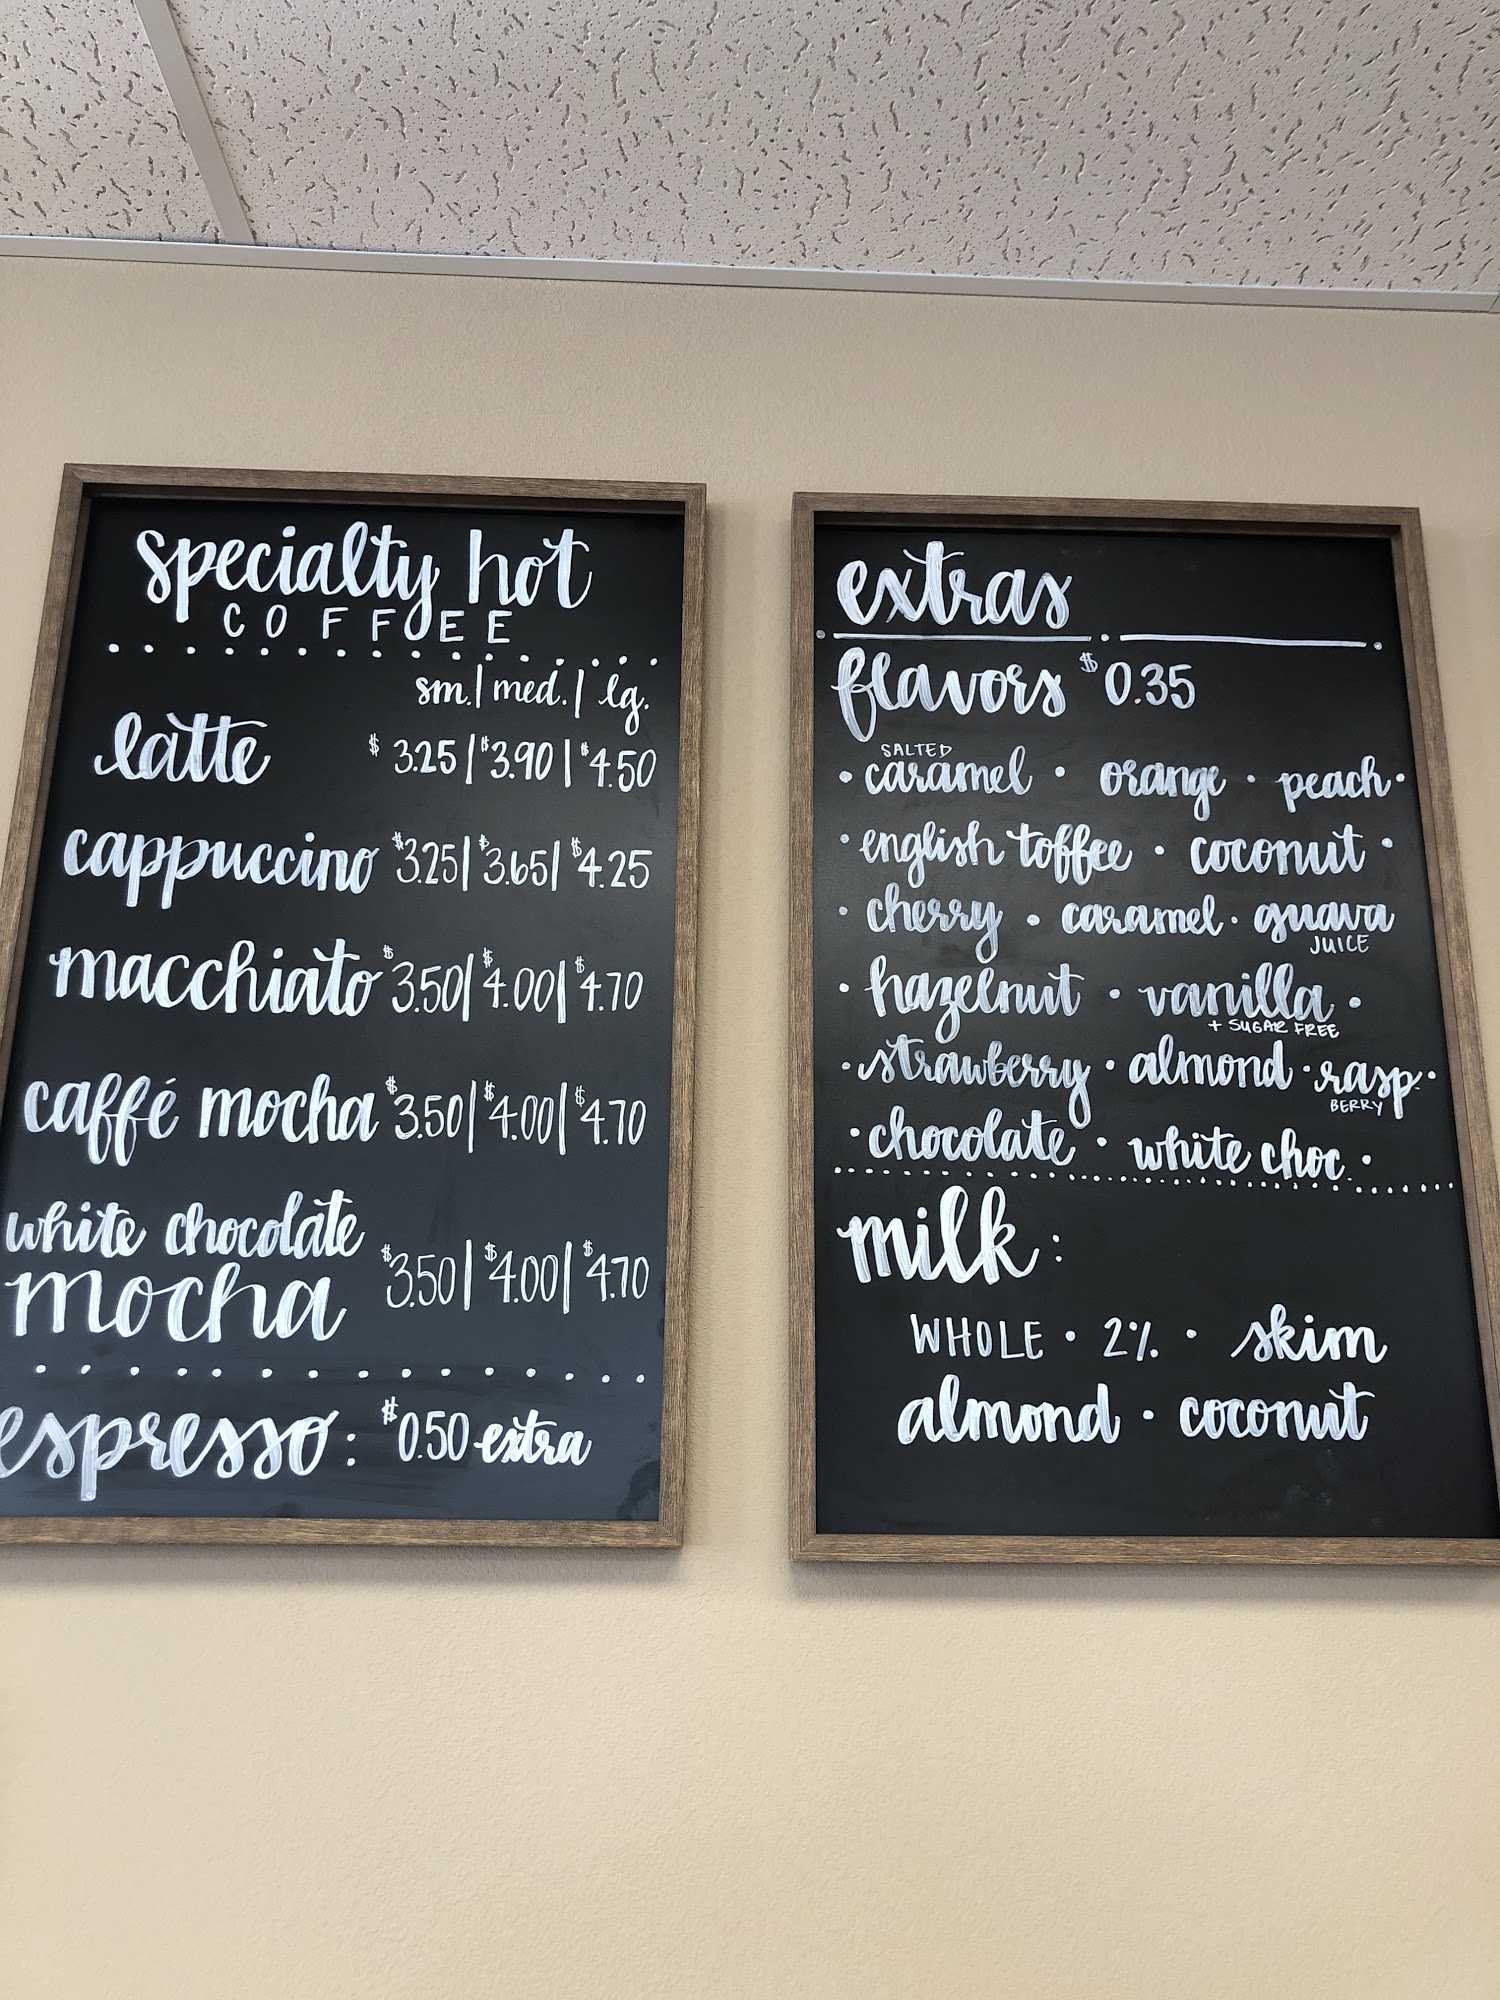 specialty hot
COFFEE
sm. | med. | lg.
latte $3.25 | $3.90 | $4.50
cappuccino $3.25 | $3.65 | $4.25
macchiato $3.50 | $4.00 | $4.70
caffé mocha $3.50 | $4.00 | $4.70
white chocolate
mocha $3.50 | $4.00 | $4.70
espresso: $0.50 extra
extras
flavors $0.35
SALTED
• caramel • orange • peach •
• english toffee • coconut •
• cherry • caramel • guava
JUICE
• hazelnut • vanilla •
+ SUGAR FREE
• strawberry • almond • rasp. •
BERRY
• chocolate • white choc. •
milk:
WHOLE • 2% • skim
almond • coconut